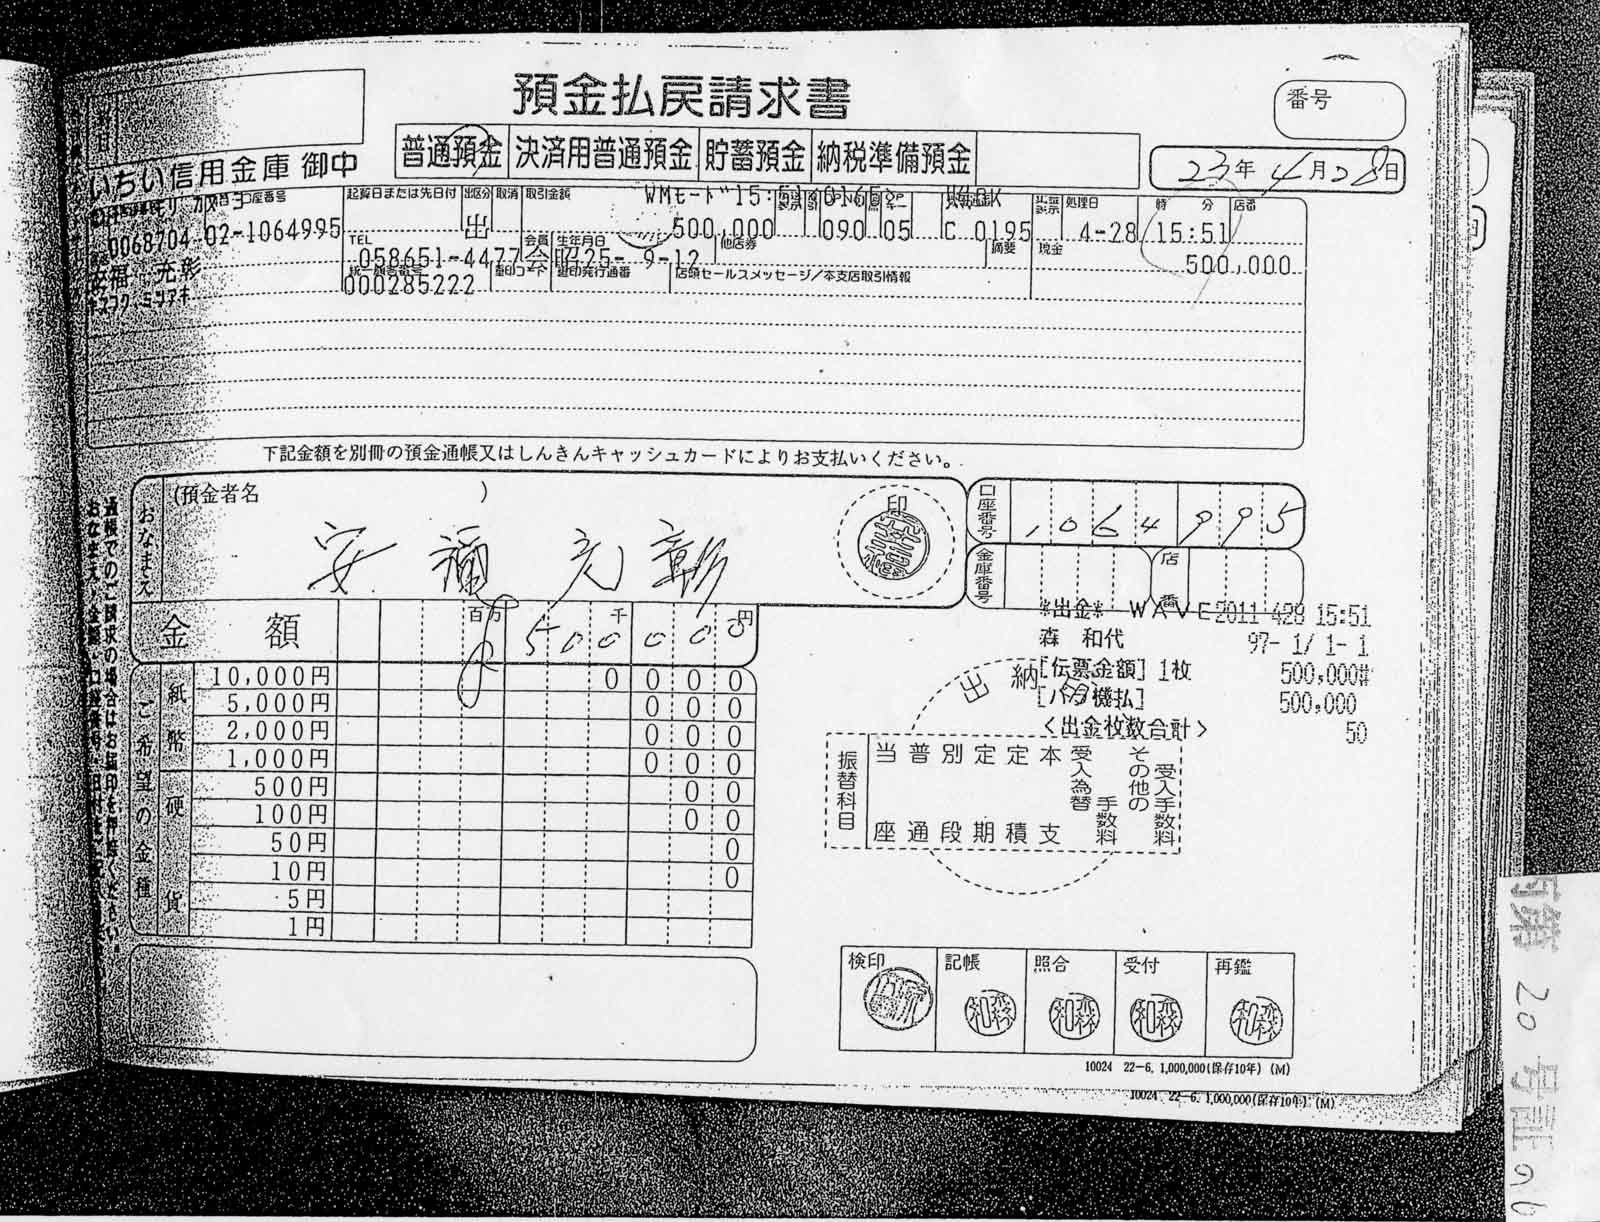 預金払戻請求書
番号
普通預金 決済用普通預金 貯蓄預金 納税準備預金
23年4月28日
いちい信用金庫 御中
口座番号 起算日または先日付 出区分 取消 取引金額 WMモード 15:51 処理日 時 分 店番
0068704-02-1064995 出 500,000 090 05 C 0195 4-28 15:51
TEL 会員 生年月日 他店券 摘要 現金
安福 充彰 058651-4477 会 昭25-9-12 500,000
統一顧客番号 店頭セールスメッセージ/本支店取引情報
000285222
下記金額を別冊の預金通帳又はしんきんキャッシュカードによりお支払いください。
おなまえ
(預金者名 )
安福充彰
印
口座番号 1064995
金庫番号
店番
金額 百万 千 円
500000
*出金* WAVE2011 428 15:51
森 和代 97- 1/ 1- 1
[伝票金額] 1枚 500,000#
機払] 500,000
<出金枚数合計> 50
出納
ご希望の金種
紙幣
10,000円 0 0 0 0
5,000円 0 0 0
2,000円 0 0 0
1,000円 0 0 0
硬貨
500円 0 0
100円 0 0
50円 0
10円 0
5円
1円
振替科目
当座 普通 別段 定期 定積 本支
受入為替手数料
その他の受入手数料
検印 記帳 照合 受付 再鑑
森和 森和 森和 森和
10024 22-6. 1,000,000(保存10年) (M)
10024 22-6. 1,000,000(保存10年) (M)
第20号証の6